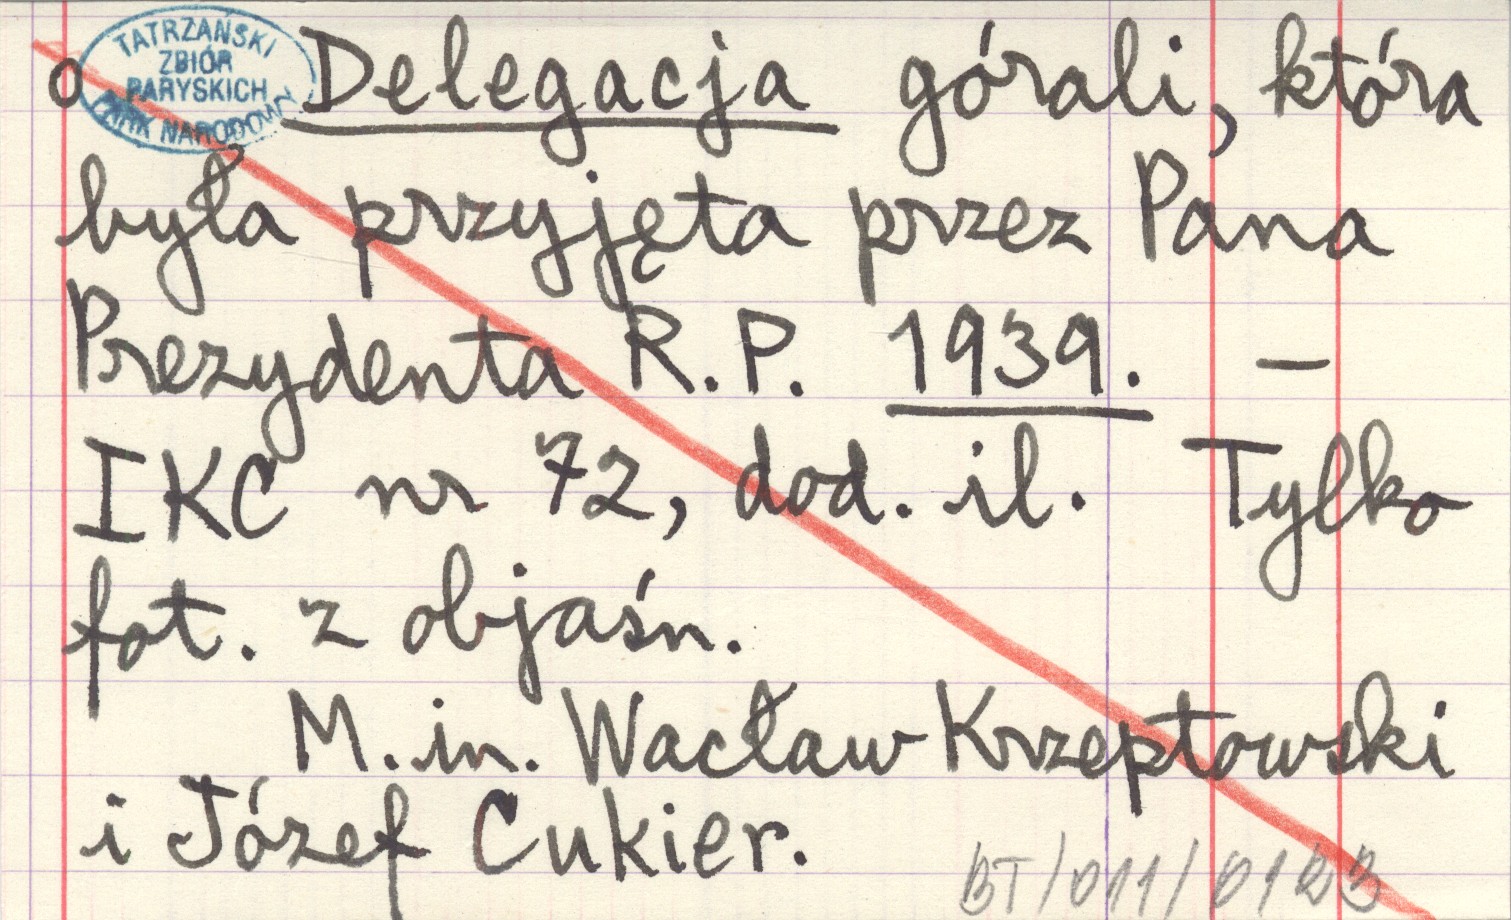 TATRZAŃSKI
ZBIÓR
PARYSKICH
PARK NARODOWY
o Delegacja górali, która
była przyjęta przez Pana
Prezydenta R.P. 1939. —
IKC nr 72, dod. il. Tylko
fot. z objaśn.
M. in. Wacław Krzeptowski
i Józef Cukier.
BT/011/0123